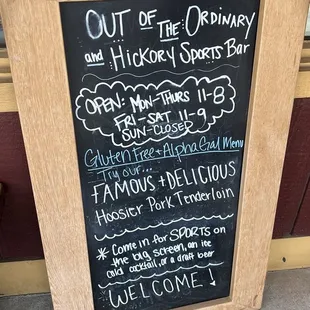 OUT OF THE ORDINARY
and HICKORY SPORTS BAR
OPEN: MON-THURS 11-8
FRI-SAT 11-9
SUN-CLOSED
Gluten Free + Alpha Gal Menu
Try our...
FAMOUS + DELICIOUS
Hoosier Pork Tenderloin
* Come in for SPORTS on
the big screen, an ice
cold cocktail, or a draft beer
WELCOME!